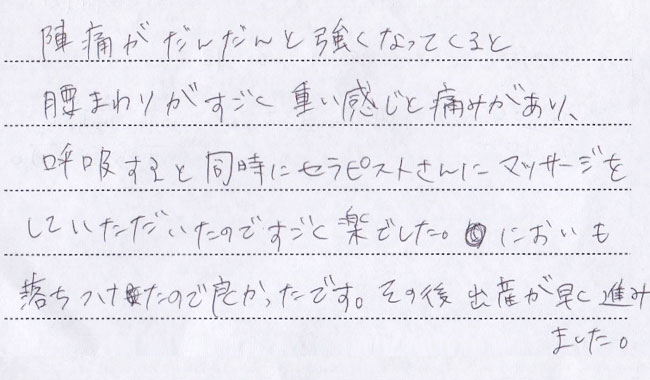 陣痛がだんだんと強くなってくると
腰まわりがすごく重い感じと痛みがあり、
呼吸すると同時にセラピストさんにマッサージを
していただいたのですごく楽でした。においも
落ちつけたので良かったです。その後出産が早く進み
ました。